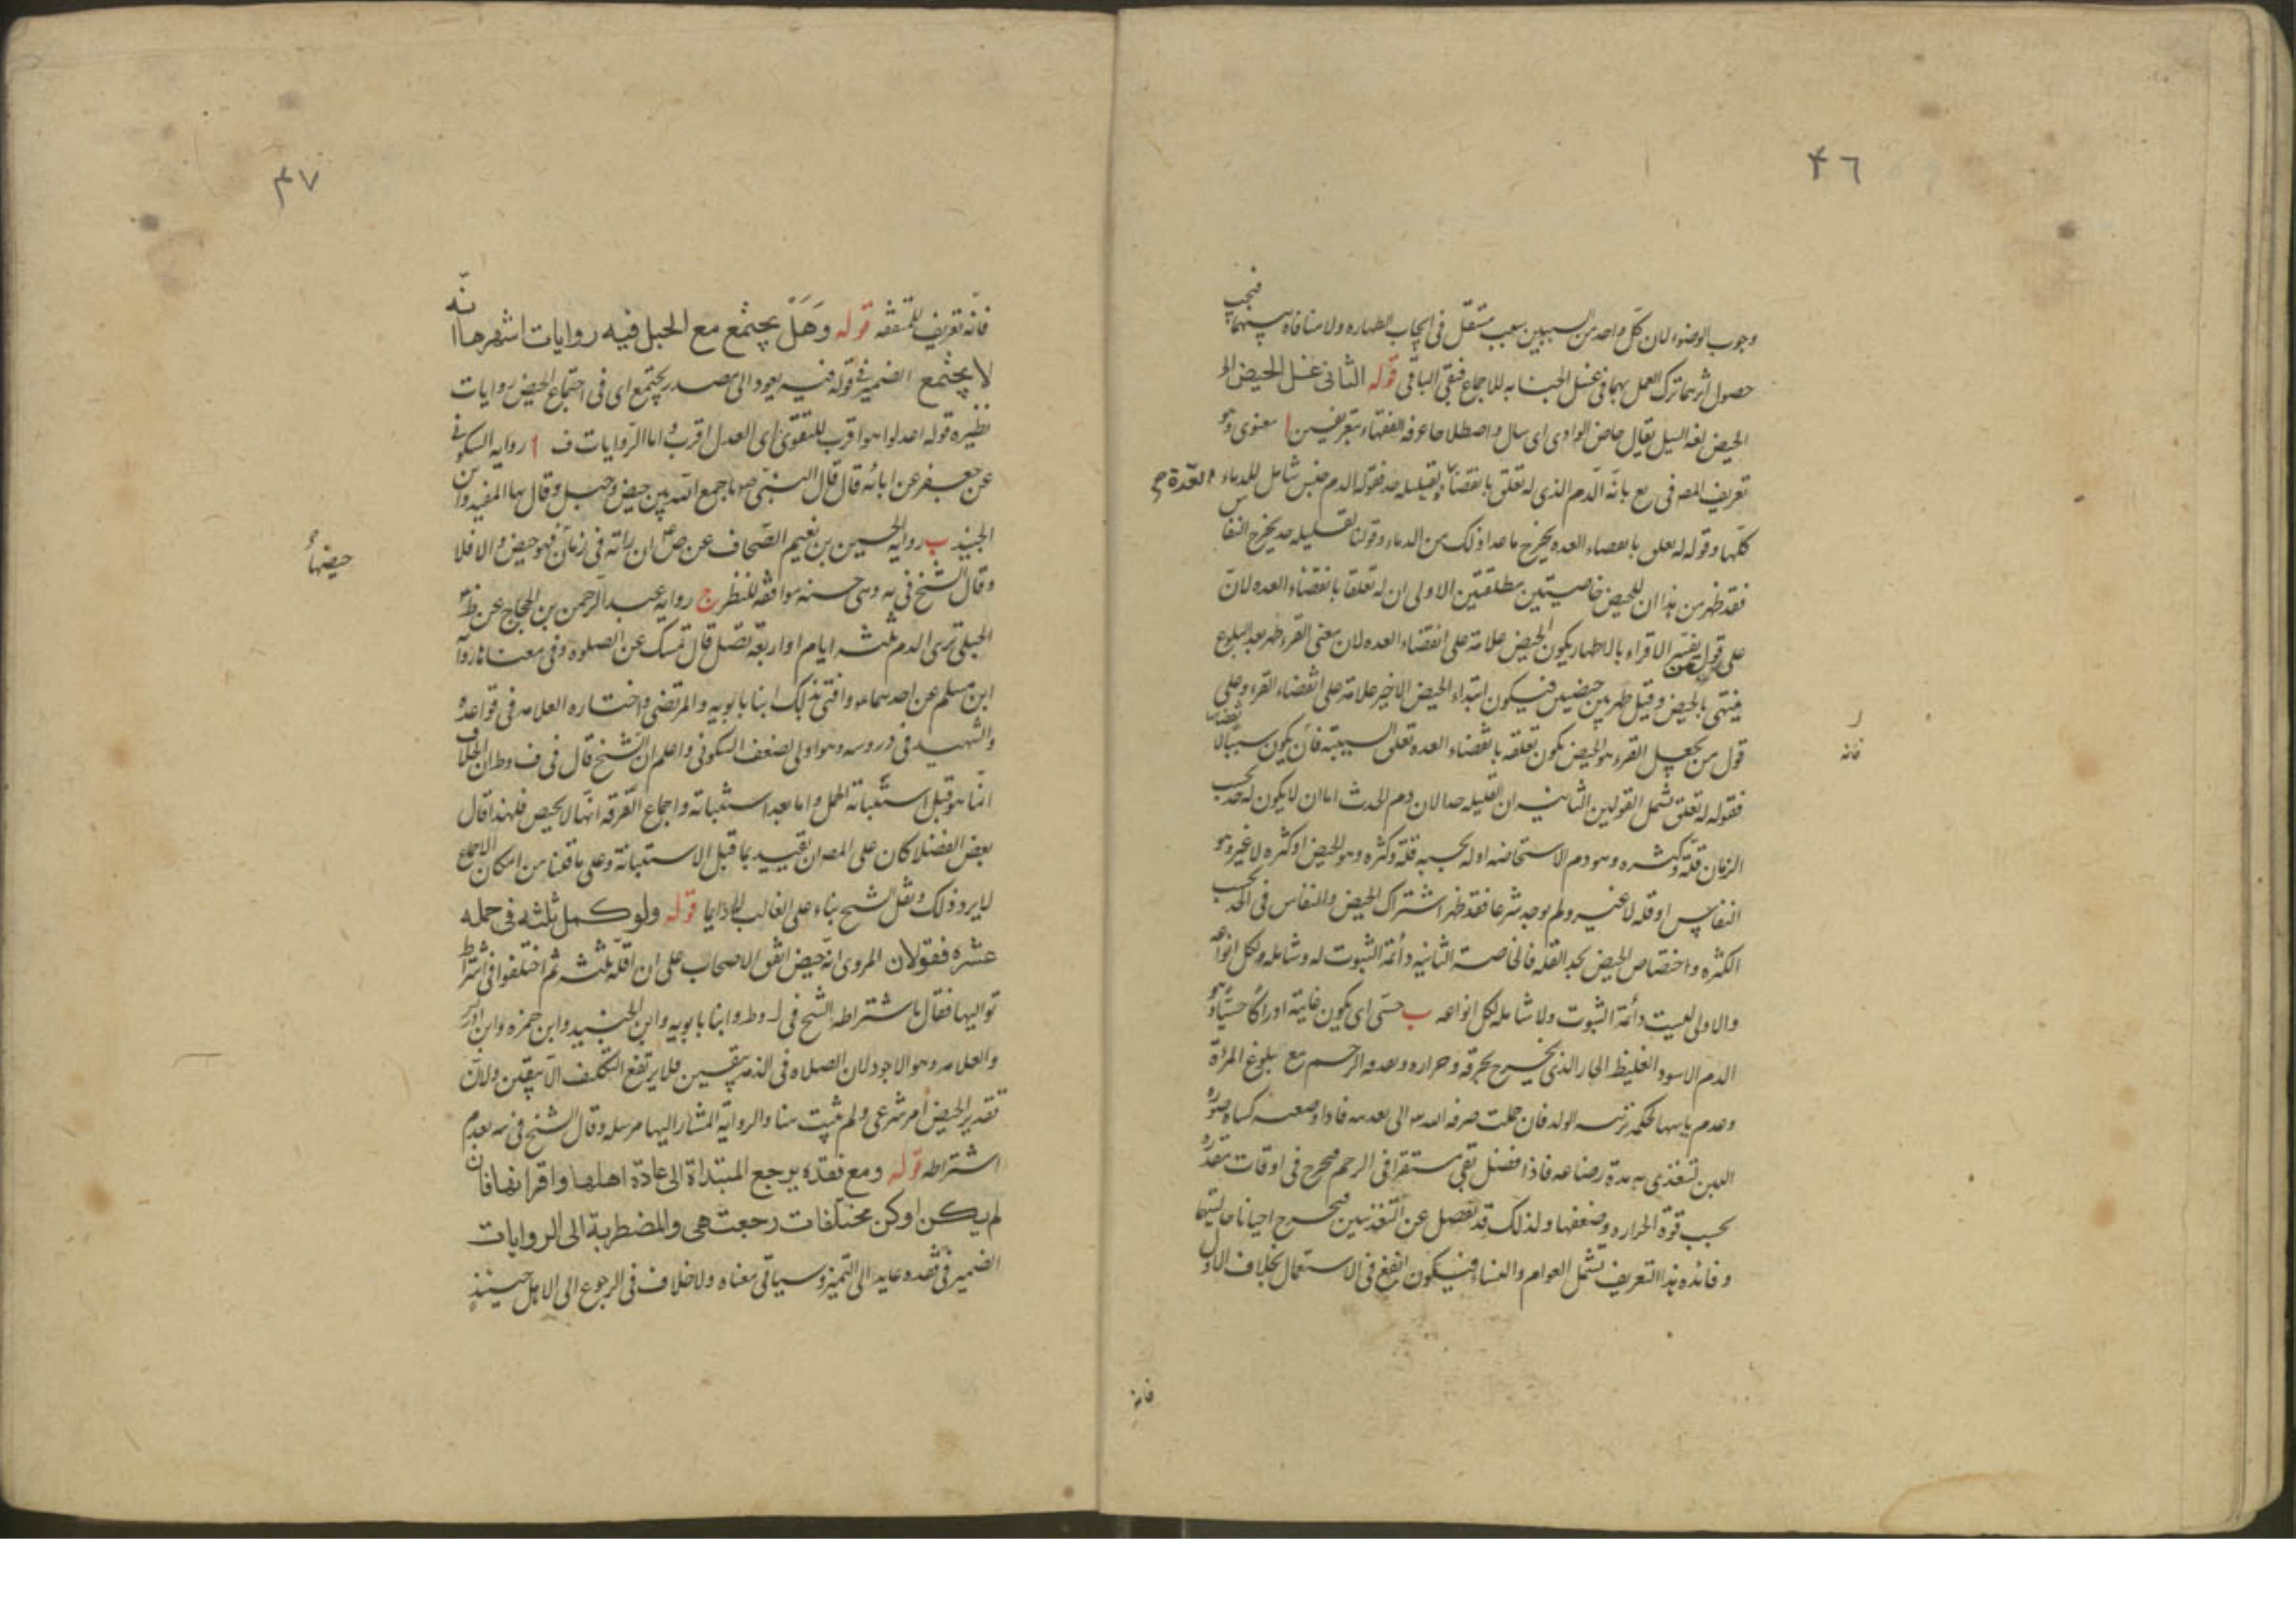 ٤٦
وجوب الوضوء لان كل واحد من السببين سبب مستقل فى ايجاب الطهاره ولا منافاه بينهما فيجب
حصول اثرهما ترك العمل بهما فى غسل الجنابه للاجماع فبقى الباقى قوله الثانى غسل الحيض الخ
الحيض لغه السيل يقال حاض الوادى اى سال واصطلاحا عرفه الفقهاء بتعريفين ا معنوى وهو
تعريف المصه فى يع بانه الدم الذى له تعلق بانقضاء العدة ولقليله حد فقوله الدم جنس شامل للدماء
كلها وقوله له تعلق بانقضاء العده يخرج ما عدا ذلك من الدماء وقولنا لقليله حد يخرج النفاس
فقد ظهر من هذا ان للحيض خاصيتين مطلقتين الاولى ان له تعلقا بانقضاء العده لان
على قول من يفسر الاقراء بالاطهار يكون الحيض علامة على انقضاء العده لان معنى القرء طهر بعد البلوغ
ينتهى بالحيض وقيل طهر بين حيضين فيكون ابتداء الحيض الاخير علامة على انقضاء القرء وعلى
قول من يجعل القرء هو الحيض يكون تعلقه بانقضاء العده تعلق السببية فانه يكون سببا لانقضائها
فقوله له تعلق تشمل القولين الثانيه ان لقليله حدا لان دم الحدث اما ان لا يكون له حد بحسب
الزمان قلة وكثره وهو دم الاستحاضه او له بحسبه قلة وكثره وهو الحيض او كثره لا غير وهو
النفاس او قله لا غير ولم يوجد شرعا فقد ظهر اشتراك الحيض والنفاس فى الحد بحسب
الكثره واختصاص الحيض بحد القله فالخاصة الثانيه دائمة الثبوت له وشامله ولكل انواعه
والاولى ليست دائمة الثبوت ولا شامله لكل انواعه ب حسى اى يكون غايته ادراكا حسيا وهو
الدم الاسود الغليظ الحار الذى يخرج بحرقه وحراره الرحم مع بلوغ المراة
وعدم ياسها لحكمة تربيه الولد فان حملت صرفه الله الى تغذيته فاذا وضعت كساه صورة
اللبن لتغذى به مدة رضاعه فاذا فضل بقى مستقرا فى الرحم فيخرج فى اوقات متقدره
بحسب قوة الحراره وضعفها ولذلك قد تفضل عن التغذيتين فيخرج احيانا حالتيها
وفائده هذا التعريف تشمل العوام والنساء فيكون انفع فى الاستعمال بخلاف الاول
فانه
فانه
٤٧
فانه تعريف للمتفقه قوله وهل يجتمع مع الحبل فيه روايات اشهرها انه
لا يجتمع الضمير فى قوله فيه يعود الى مصدر يجتمع اى فى اجتماع الحيض روايات
نظيره قوله اعدلوا هو اقرب للتقوى اى العدل اقرب واما الروايات ف ا روايه السكونى
عن جعفر عن ابائه قال قال النبى ص ما جمع الله بين حيض وحبل وقال بها المفيد وابن
الجنيد ب روايه الحسين بن نعيم الصحاف عن ص ان راته فى زمان حيضها فهو حيض والا فلا
وقال الشيخ فى يه وهى حسنه موافقه للنظر ج روايه عبد الرحمن بن الحجاج عن ظم
الحبلى ترى الدم ثلثه ايام او اربعة تصلى قال تمسك عن الصلوة وفى معناها رواية
ابن مسلم عن احدهما وافتى بذلك ابنا بابويه والمرتضى واختاره العلامه فى قواعده
والشهيد فى دروسه وهو اولى لضعف السكونى واعلم ان الشيخ قال فى ف وط ان الخلاف
انما هو قبل استبانة الحمل واما بعد استبانته واجماع الفرقه انها لا تحيض فلهذا قال
بعض الفضلا كان على المصه ان تقييد بما قبل الاستبانة وعلى ما قلنا من امكان الاجماع
لا يرد ذلك ونقل الشيخ بناء على الغالب لا دايما قوله ولو كمل ثلثه فى جمله
عشره فقولان المروى انه حيض اتفق الاصحاب على ان اقله ثلثه ثم اختلفوا فى اشتراط
تواليها فقال باشتراطه الشيخ فى ل وط وابنا بابويه وابن الجنيد وابن حمزه وابن ادريس
والعلامه وهو الاجود لان الصلاه فى الذمه بيقين فلا يرتفع التكليف الا بيقين ولان
تقدير الحيض امر شرعى ولم يثبت هنا والرواية المشار اليها مرسله وقال الشيخ فى يه بعدم
اشتراطه قوله ومع فقده يرجع المبتداة الى عادة اهلها واقرانها فان
لم يكن او كن مختلفات رجعت هى والمضطربة الى الروايات
الضمير فى فقده عايد الى التميز وسياتى معناه ولا خلاف فى الرجوع الى الاهل حينئذ